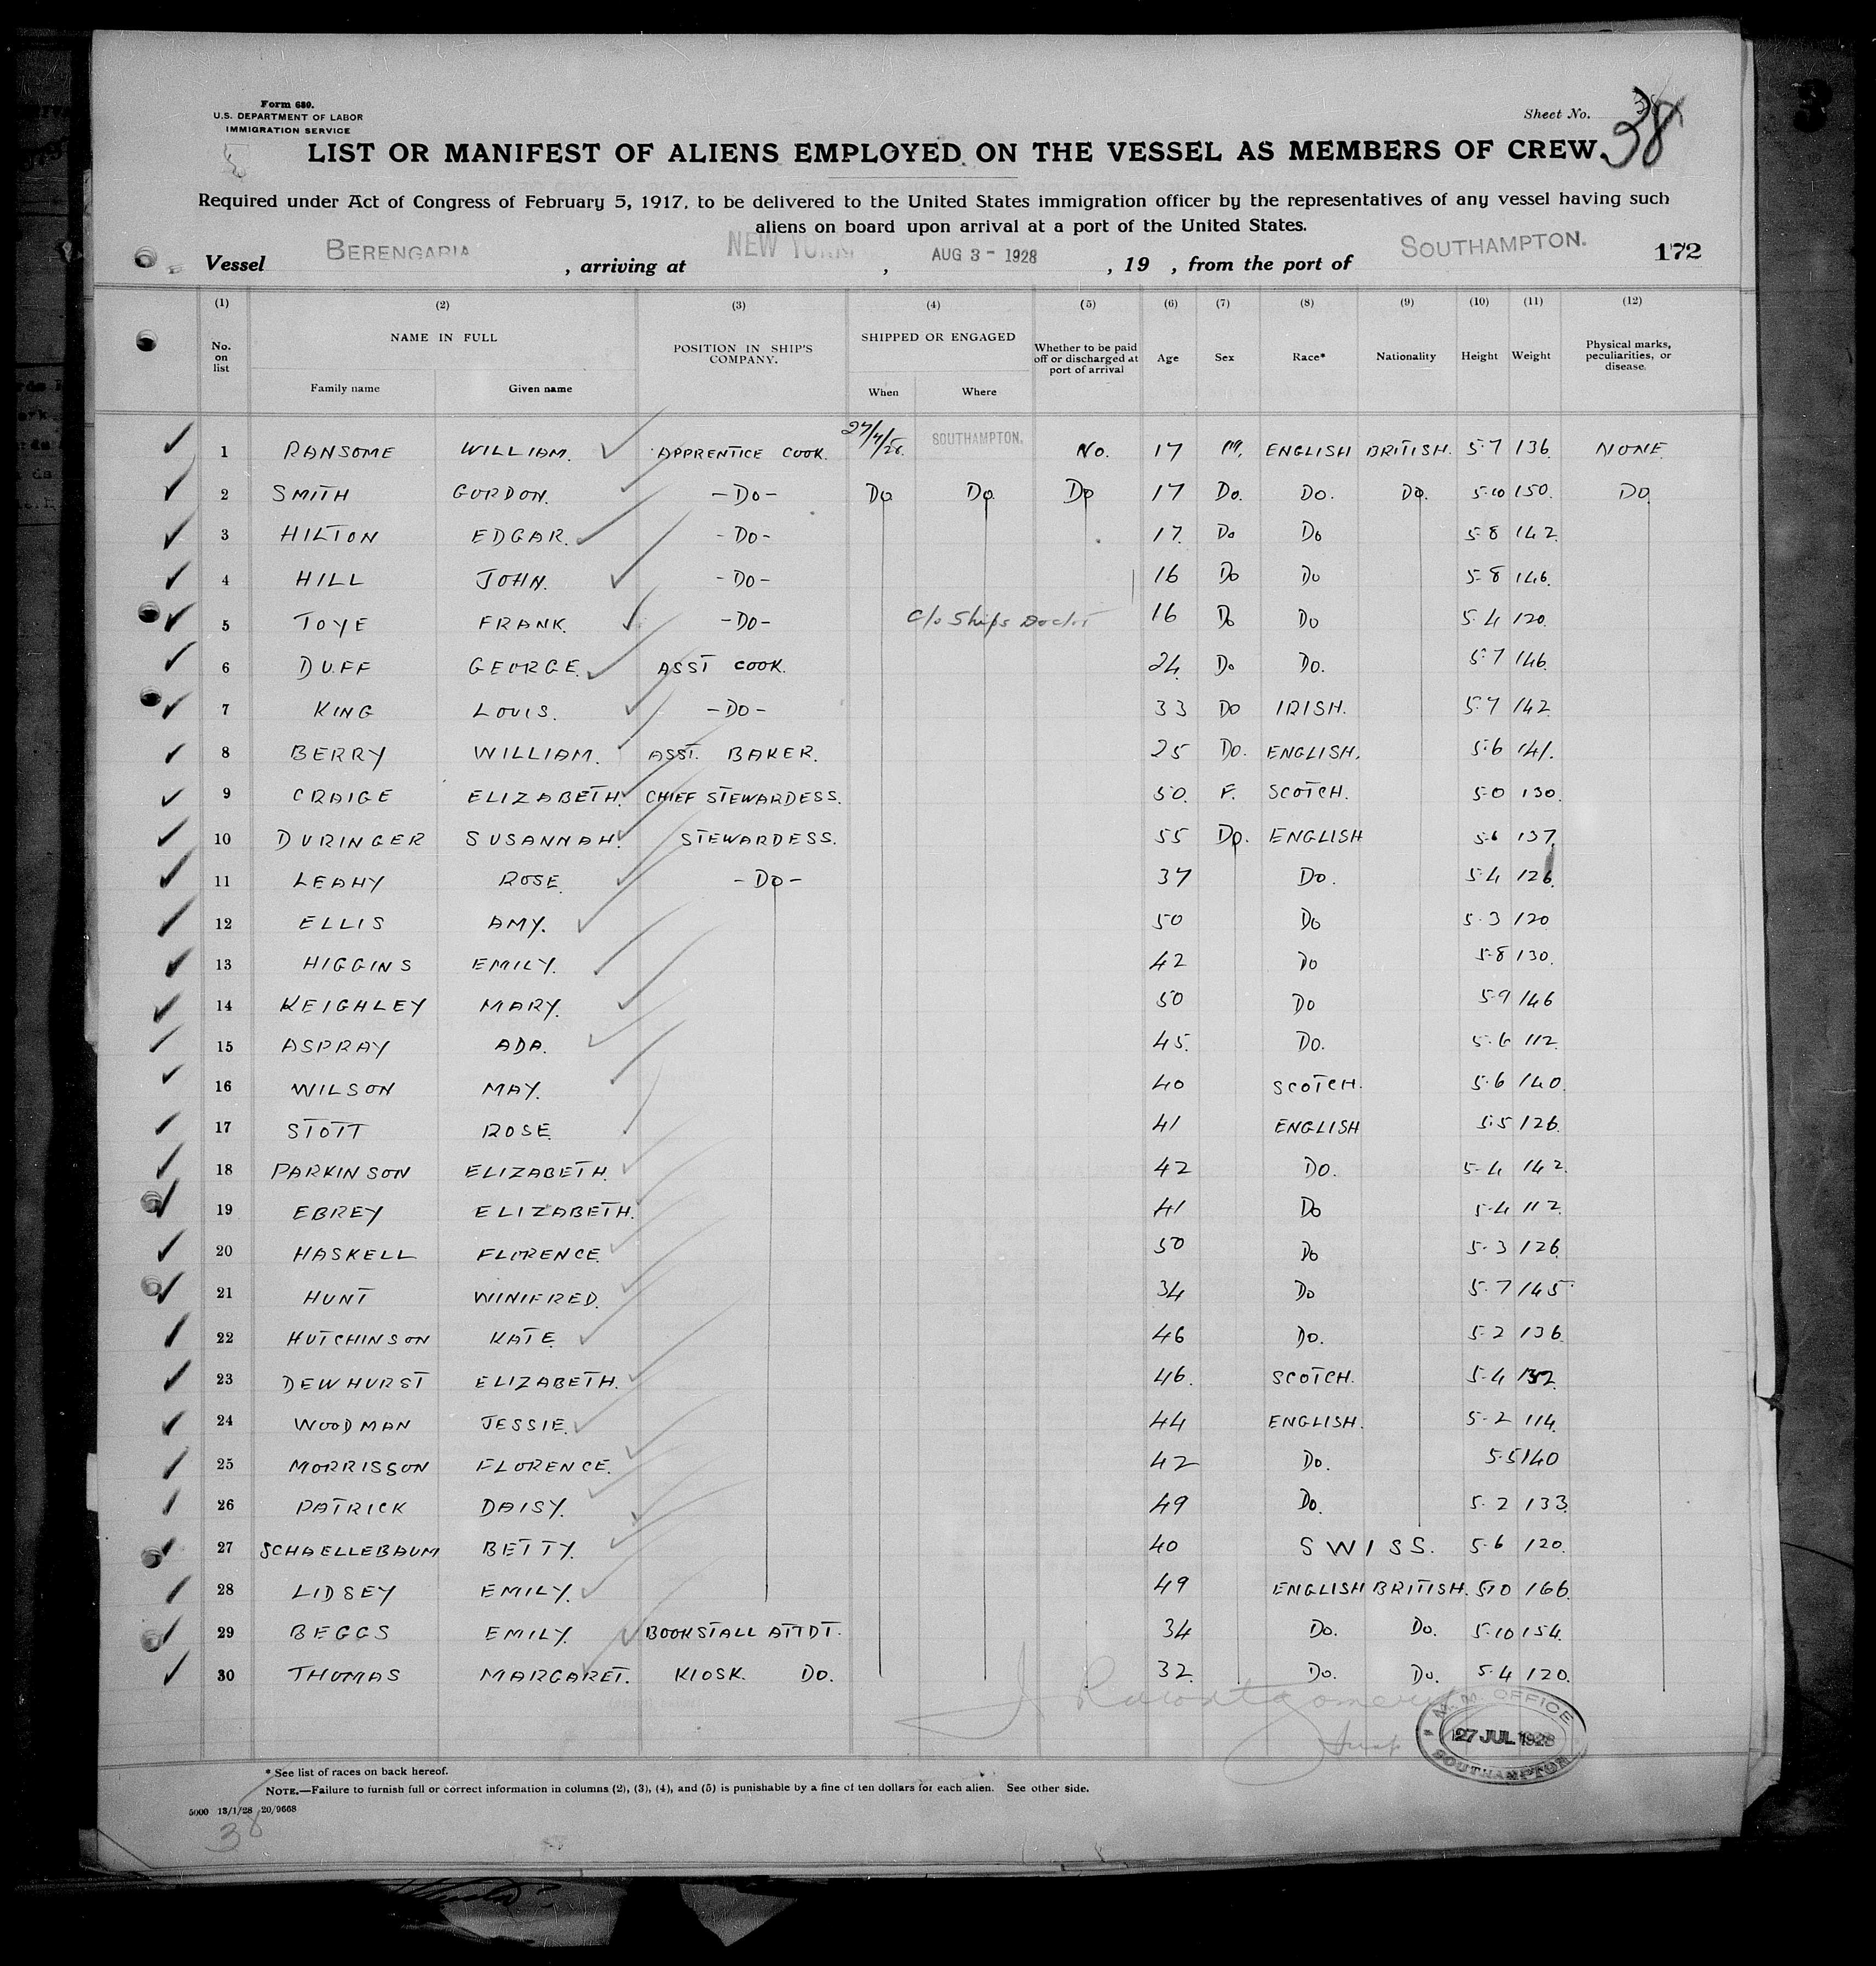 Form 680.
U.S. DEPARTMENT OF LABOR
IMMIGRATION SERVICE
Sheet No. 38
LIST OR MANIFEST OF ALIENS EMPLOYED ON THE VESSEL AS MEMBERS OF CREW.
Required under Act of Congress of February 5, 1917, to be delivered to the United States immigration officer by the representatives of any vessel having such
aliens on board upon arrival at a port of the United States.
Vessel BERENGARIA, arriving at NEW YORK, AUG 3 - 1928, 19 , from the port of SOUTHAMPTON. 172
(1) (2) (3) (4) (5) (6) (7) (8) (9) (10) (11) (12)
No. on list NAME IN FULL POSITION IN SHIP'S COMPANY. SHIPPED OR ENGAGED Whether to be paid off or discharged at port of arrival Age Sex Race* Nationality Height Weight Physical marks, peculiarities, or disease.
Family name Given name When Where
1 RANSOME WILLIAM. APPRENTICE COOK. 27/7/28. SOUTHAMPTON. No. 17 M. ENGLISH BRITISH. 5-7 136. NONE.
2 SMITH GORDON. -DO- DO DO DO 17 DO. DO. DO. 5-10 150. DO.
3 HILTON EDGAR. -DO- 17. DO DO 5-8 142.
4 HILL JOHN. -DO- 16 DO DO 5-8 146.
5 TOYE FRANK. -DO- C/o Ships Doctor 16 DO DO 5-4 120.
6 DUFF GEORGE. ASST COOK. 24. DO DO. 5-7 146.
7 KING LOUIS. -DO- 33 DO IRISH. 5-7 142.
8 BERRY WILLIAM. ASST. BAKER. 25 DO. ENGLISH. 5-6 141.
9 CRAIGE ELIZABETH. CHIEF STEWARDESS. 50. F. SCOTCH. 5-0 130.
10 DURINGER SUSANNAH. STEWARDESS. 55 DO. ENGLISH 5-6 137.
11 LEAHY ROSE. -DO- 37 DO. 5-4 126.
12 ELLIS AMY. 50 DO 5-3 120
13 HIGGINS EMILY. 42 DO 5-8 130.
14 KEIGHLEY MARY. 50 DO 5-9 146
15 ASPRAY ADA. 45. DO. 5-6 112.
16 WILSON MAY. 40 SCOTCH. 5-6 140.
17 STOTT ROSE. 41 ENGLISH 5-5 126.
18 PARKINSON ELIZABETH. 42 DO. 5-4 142.
19 EBREY ELIZABETH. 41 DO 5-4 112.
20 HASKELL FLORENCE. 50 DO 5-3 126.
21 HUNT WINIFRED. 34 DO 5-7 145
22 HUTCHINSON KATE. 46 DO. 5-2 136.
23 DEWHURST ELIZABETH. 46. SCOTCH. 5-4 132.
24 WOODMAN JESSIE. 44 ENGLISH. 5-2 114.
25 MORRISSON FLORENCE. 42 DO. 5-5 140
26 PATRICK DAISY. 49 DO. 5-2 133.
27 SCHAELLEBAUM BETTY. 40 SWISS. 5-6 120.
28 LIDSEY EMILY. 49 ENGLISH BRITISH. 5-10 166.
29 BEGGS EMILY. BOOKSTALL ATTDT. 34 DO. DO. 5-10 154.
30 THOMAS MARGARET. KIOSK. DO. 32. DO. DO. 5-4 120.
M.M. OFFICE
27 JUL 1928
SOUTHAMPTON
* See list of races on back hereof.
NOTE.—Failure to furnish full or correct information in columns (2), (3), (4), and (5) is punishable by a fine of ten dollars for each alien. See other side.
5000 13/1/28 20/9668
38